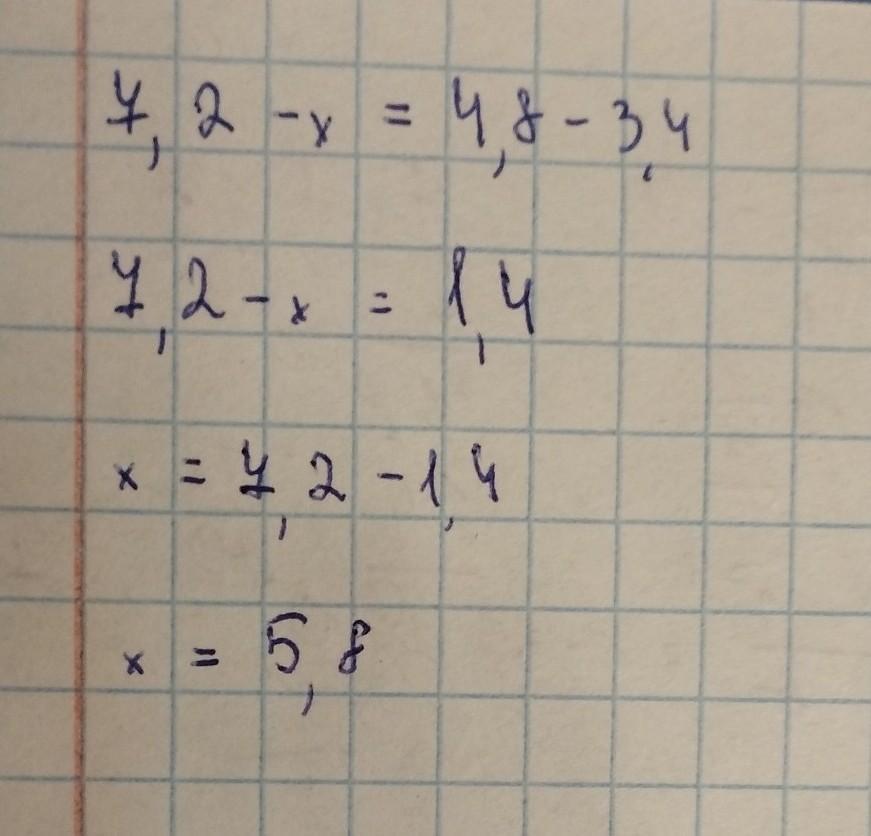 7,2 - x = 4,8 - 3,4
7,2 - x = 1,4
x = 7,2 - 1,4
x = 5,8